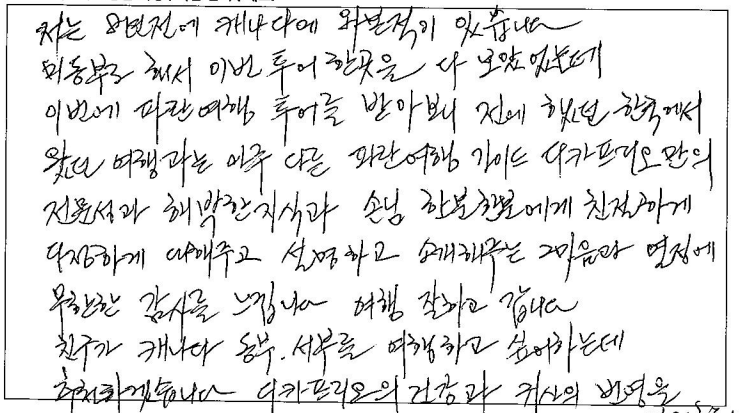 저는 8년전에 캐나다에 와본적이 있습니다
미동부로 해서 이번 투어 한곳을 다 보았었는데
이번에 파란여행 투어를 받아보니 전에 했던 한국에서
왔던 여행과는 아주 다른 파란여행 가이드 디카프리오만의
전문성과 해박한지식과 손님 한분한분에게 친절하게
다정하게 대해주고 설명하고 소개해주는 그마음과 열정에
무한한 감사를 느낍니다 여행 잘하고 갑니다
친구가 캐나다 동부.서부를 여행하고 싶어하는데
추천하겠습니다 디카프리오의 건강과 귀사의 번영을